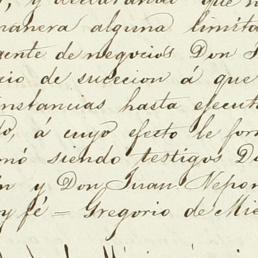 y declarando que n
manera alguna limita
gente de negocios Don
cio de sucecion á que
nstancias hasta ejecut
o, á cuyo efecto le for
mó siendo testigos D
n y Don Juan Nepom
y fé = Gregorio de Mie